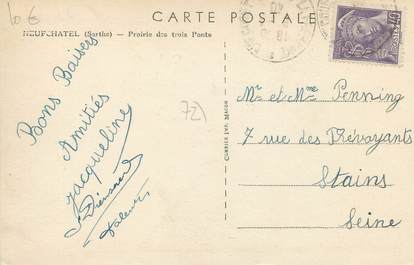 10 €
CARTE POSTALE
NEUFCHATEL (Sarthe) — Prairie des trois Ponts
Bons Baisers
Amitiés
Jacqueline
72)
COMBIER IMP. MACON
Mr et Mme Penning
7 rue des Prévoyants
Stains
Seine